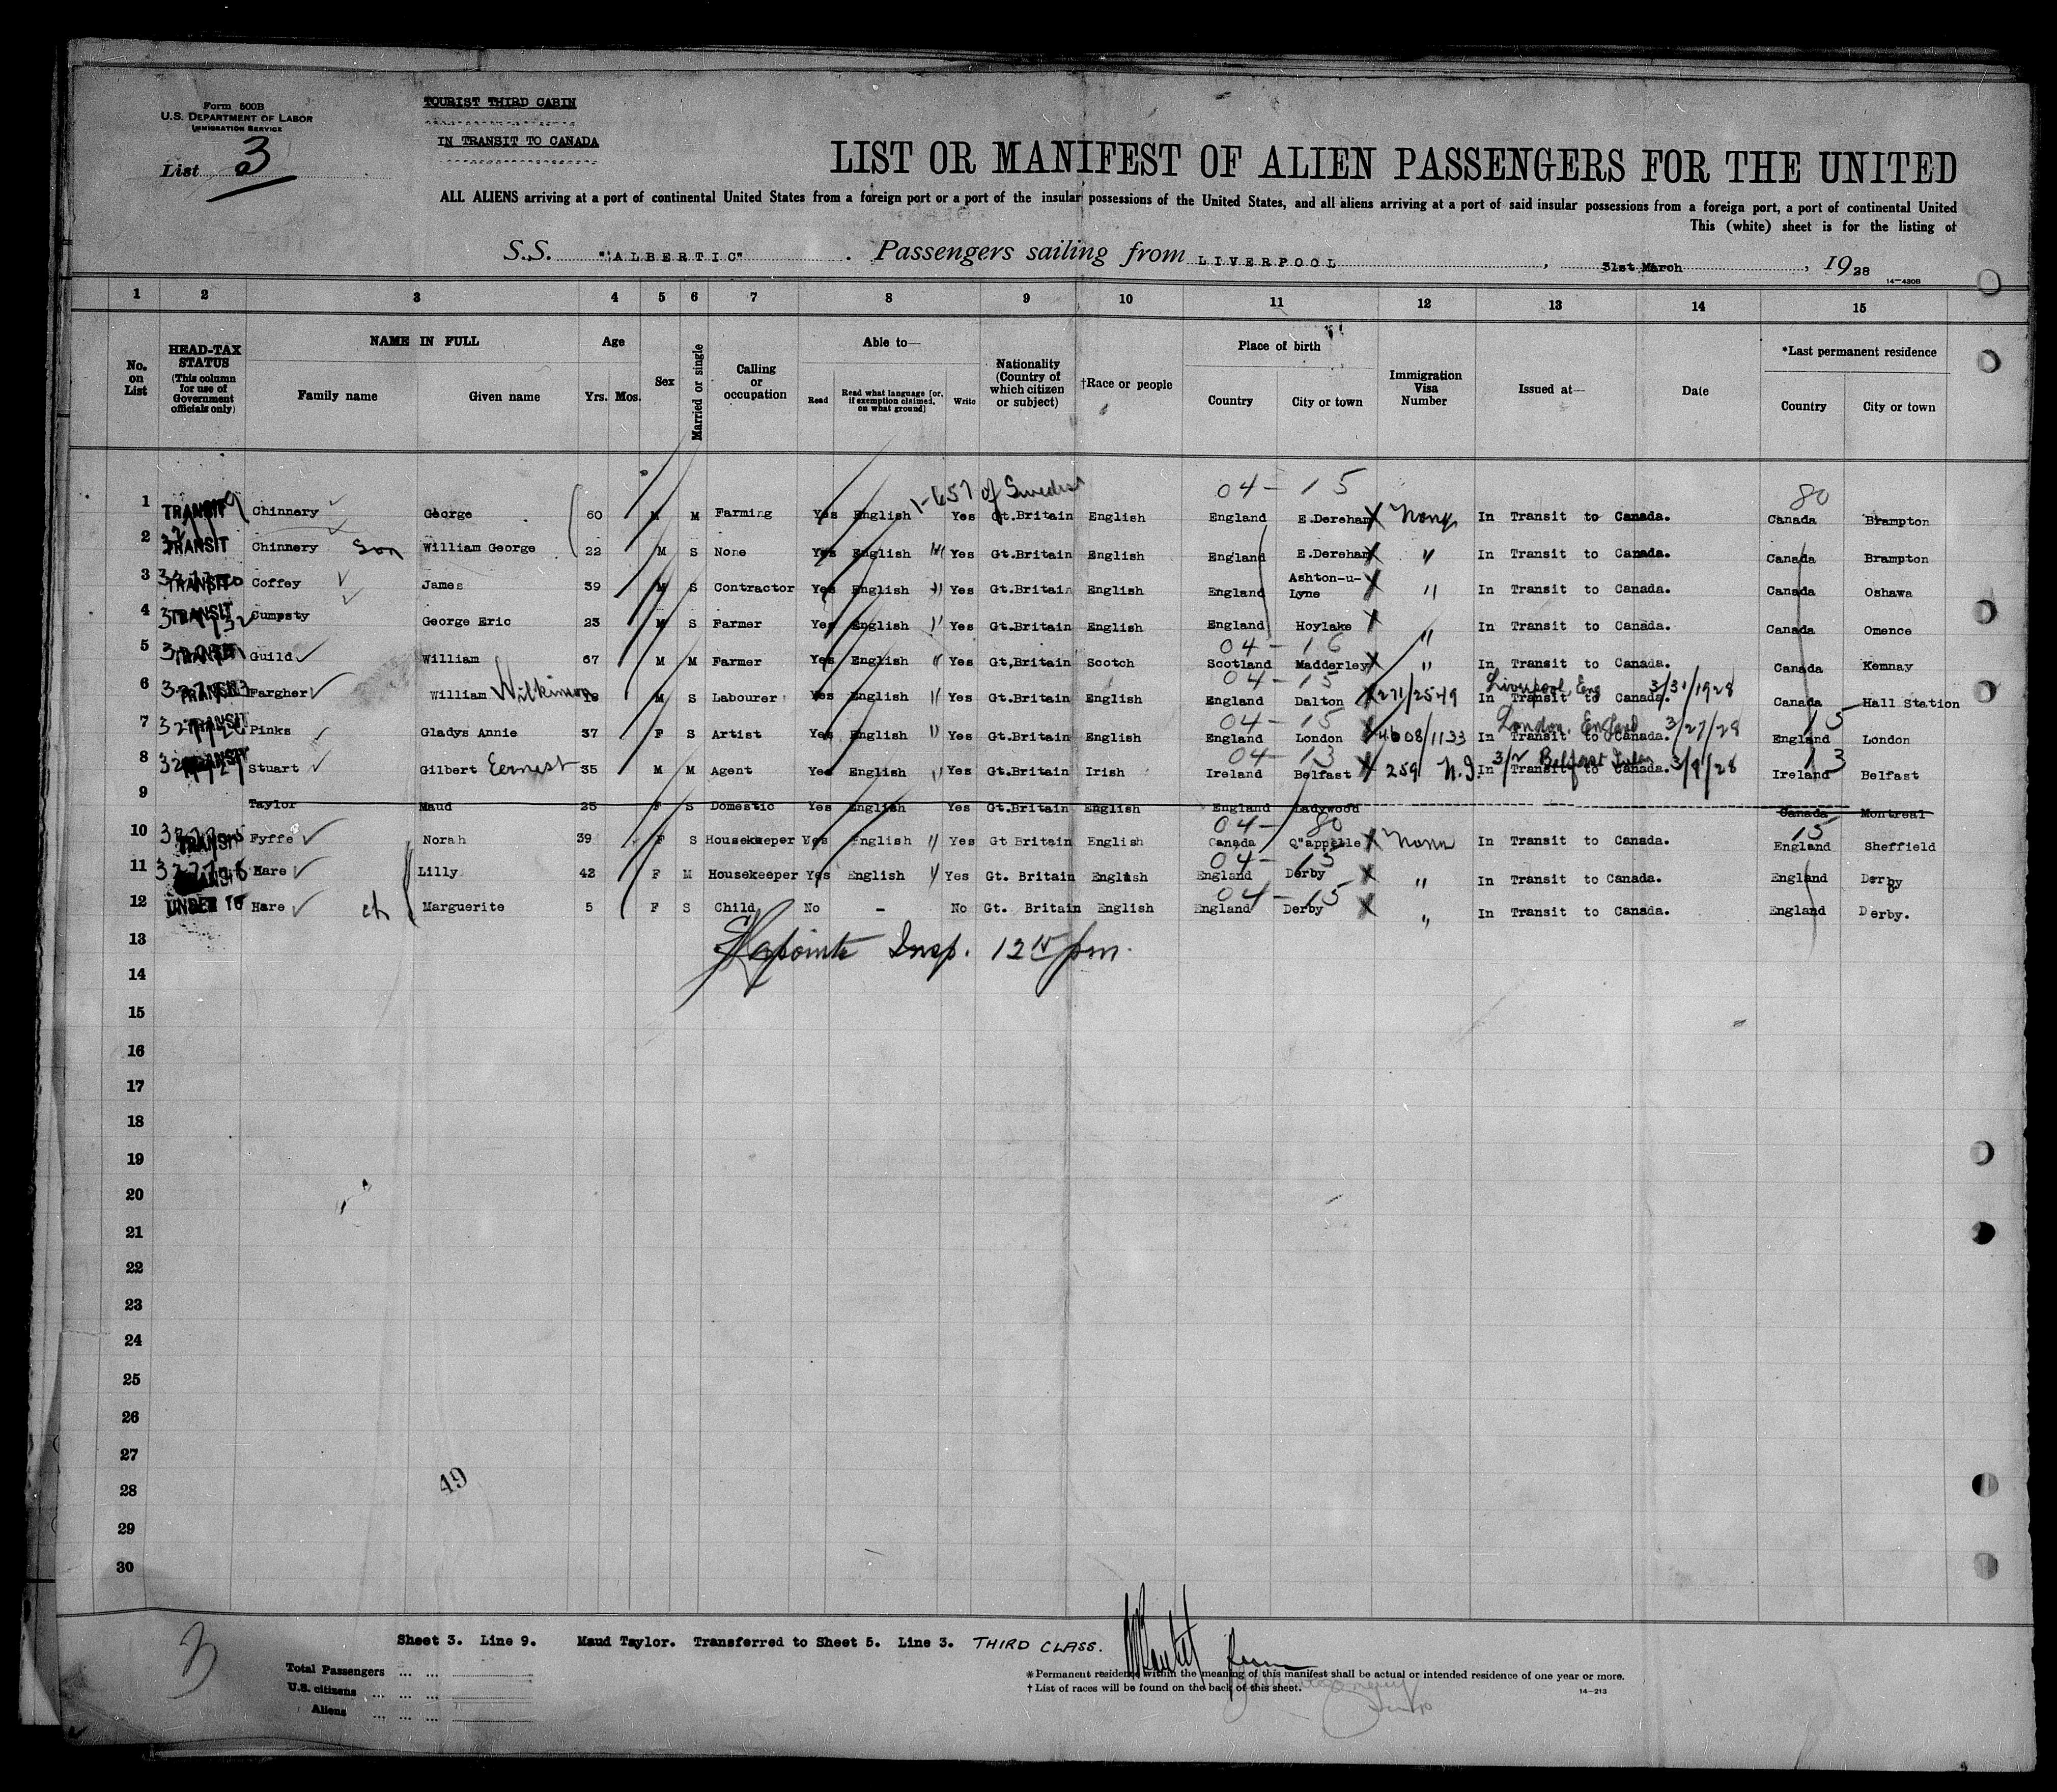 Form 500B
U.S. DEPARTMENT OF LABOR
IMMIGRATION SERVICE
List 3
TOURIST THIRD CABIN
IN TRANSIT TO CANADA
LIST OR MANIFEST OF ALIEN PASSENGERS FOR THE UNITED
ALL ALIENS arriving at a port of continental United States from a foreign port or a port of the insular possessions of the United States, and all aliens arriving at a port of said insular possessions from a foreign port, a port of continental United
This (white) sheet is for the listing of
S.S. "ALBERTIC" . Passengers sailing from LIVERPOOL , 31st March , 1928
14-430B
1 2 3 4 5 6 7 8 9 10 11 12 13 14 15
No. on List
HEAD-TAX STATUS (This column for use of Government officials only)
NAME IN FULL
Family name Given name
Age
Yrs. Mos.
Sex
Married or single
Calling or occupation
Able to—
Read Read what language [or, if exemption claimed, on what ground] Write
Nationality (Country of which citizen or subject)
†Race or people
Place of birth
Country City or town
Immigration Visa Number
Issued at—
Date
*Last permanent residence
Country City or town
1-657 of Swedish
04-15 80
1 TRANSIT Chinnery George 60 M M Farming Yes English Yes Gt.Britain English England E.Dereham None In Transit to Canada. Canada Brampton
2 TRANSIT Chinnery Son William George 22 M S None Yes English " Yes Gt.Britain English England E.Dereham " In Transit to Canada. Canada Brampton
3 TRANSIT Coffey James 39 M S Contractor Yes English " Yes Gt.Britain English England Ashton-u-Lyne " In Transit to Canada. Canada Oshawa
4 TRANSIT Cumpsty George Eric 23 M S Farmer Yes English " Yes Gt.Britain English England Hoylake " In Transit to Canada. Canada Omence
04-16
5 TRANSIT Guild William 67 M M Farmer Yes English " Yes Gt,Britain Scotch Scotland Madderley " In Transit to Canada. Canada Kemnay
04-15 Liverpool Eng 3/31/1928
6 TRANSIT Fargher William Wilkinson M S Labourer Yes English " Yes Gt.Britain English England Dalton 271/2549 In Transit to Canada. Canada Hall Station
04-15 London. England 3/27/28 15
7 TRANSIT Pinks Gladys Annie 37 F S Artist Yes English " Yes Gt.Britain English England London 4608/1133 In Transit to Canada. England London
04-13 Belfast 3/9/28 13
8 TRANSIT Stuart Gilbert Eernest 35 M M Agent Yes English " Yes Gt.Britain Irish Ireland Belfast 259 N.I. In Transit to Canada. Ireland Belfast
9 Taylor Maud 25 F S Domestic Yes English Yes Gt.Britain English England Ladywood Canada Montreal
04-80 15
10 TRANSIT Fyffe Norah 39 F S Housekeeper Yes English " Yes Gt Britain English Canada Q"appelle None In Transit to Canada. England Sheffield
04-15
11 TRANSIT Hare Lilly 42 F M Housekeeper Yes English " Yes Gt. Britain English England Derby " In Transit to Canada. England Derby
04-15
12 UNDER 16 Hare ch Marguerite 5 F S Child No - No Gt. Britain English England Derby " In Transit to Canada. England Derby.
13 Insp. 12 pm.
14
15
16
17
18
19
20
21
22
23
24
25
26
27
28
29
30
49
3
Sheet 3. Line 9. Maud Taylor. Transferred to Sheet 5. Line 3. THIRD CLASS.
Total Passengers ... ...
U.S. citizens ... ... ...
Aliens ... ... ...
* Permanent residence within the meaning of this manifest shall be actual or intended residence of one year or more.
† List of races will be found on the back of this sheet.
14-213